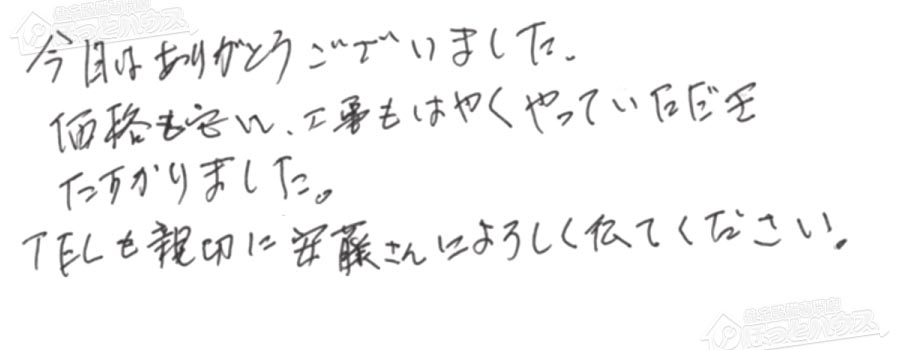 今日はありがとうございました。
価格も安い、工事もはやくやっていただき
たすかりました。
TELも親切に安藤さんによろしく伝てください。
ほっとハウス
ほっとハウス